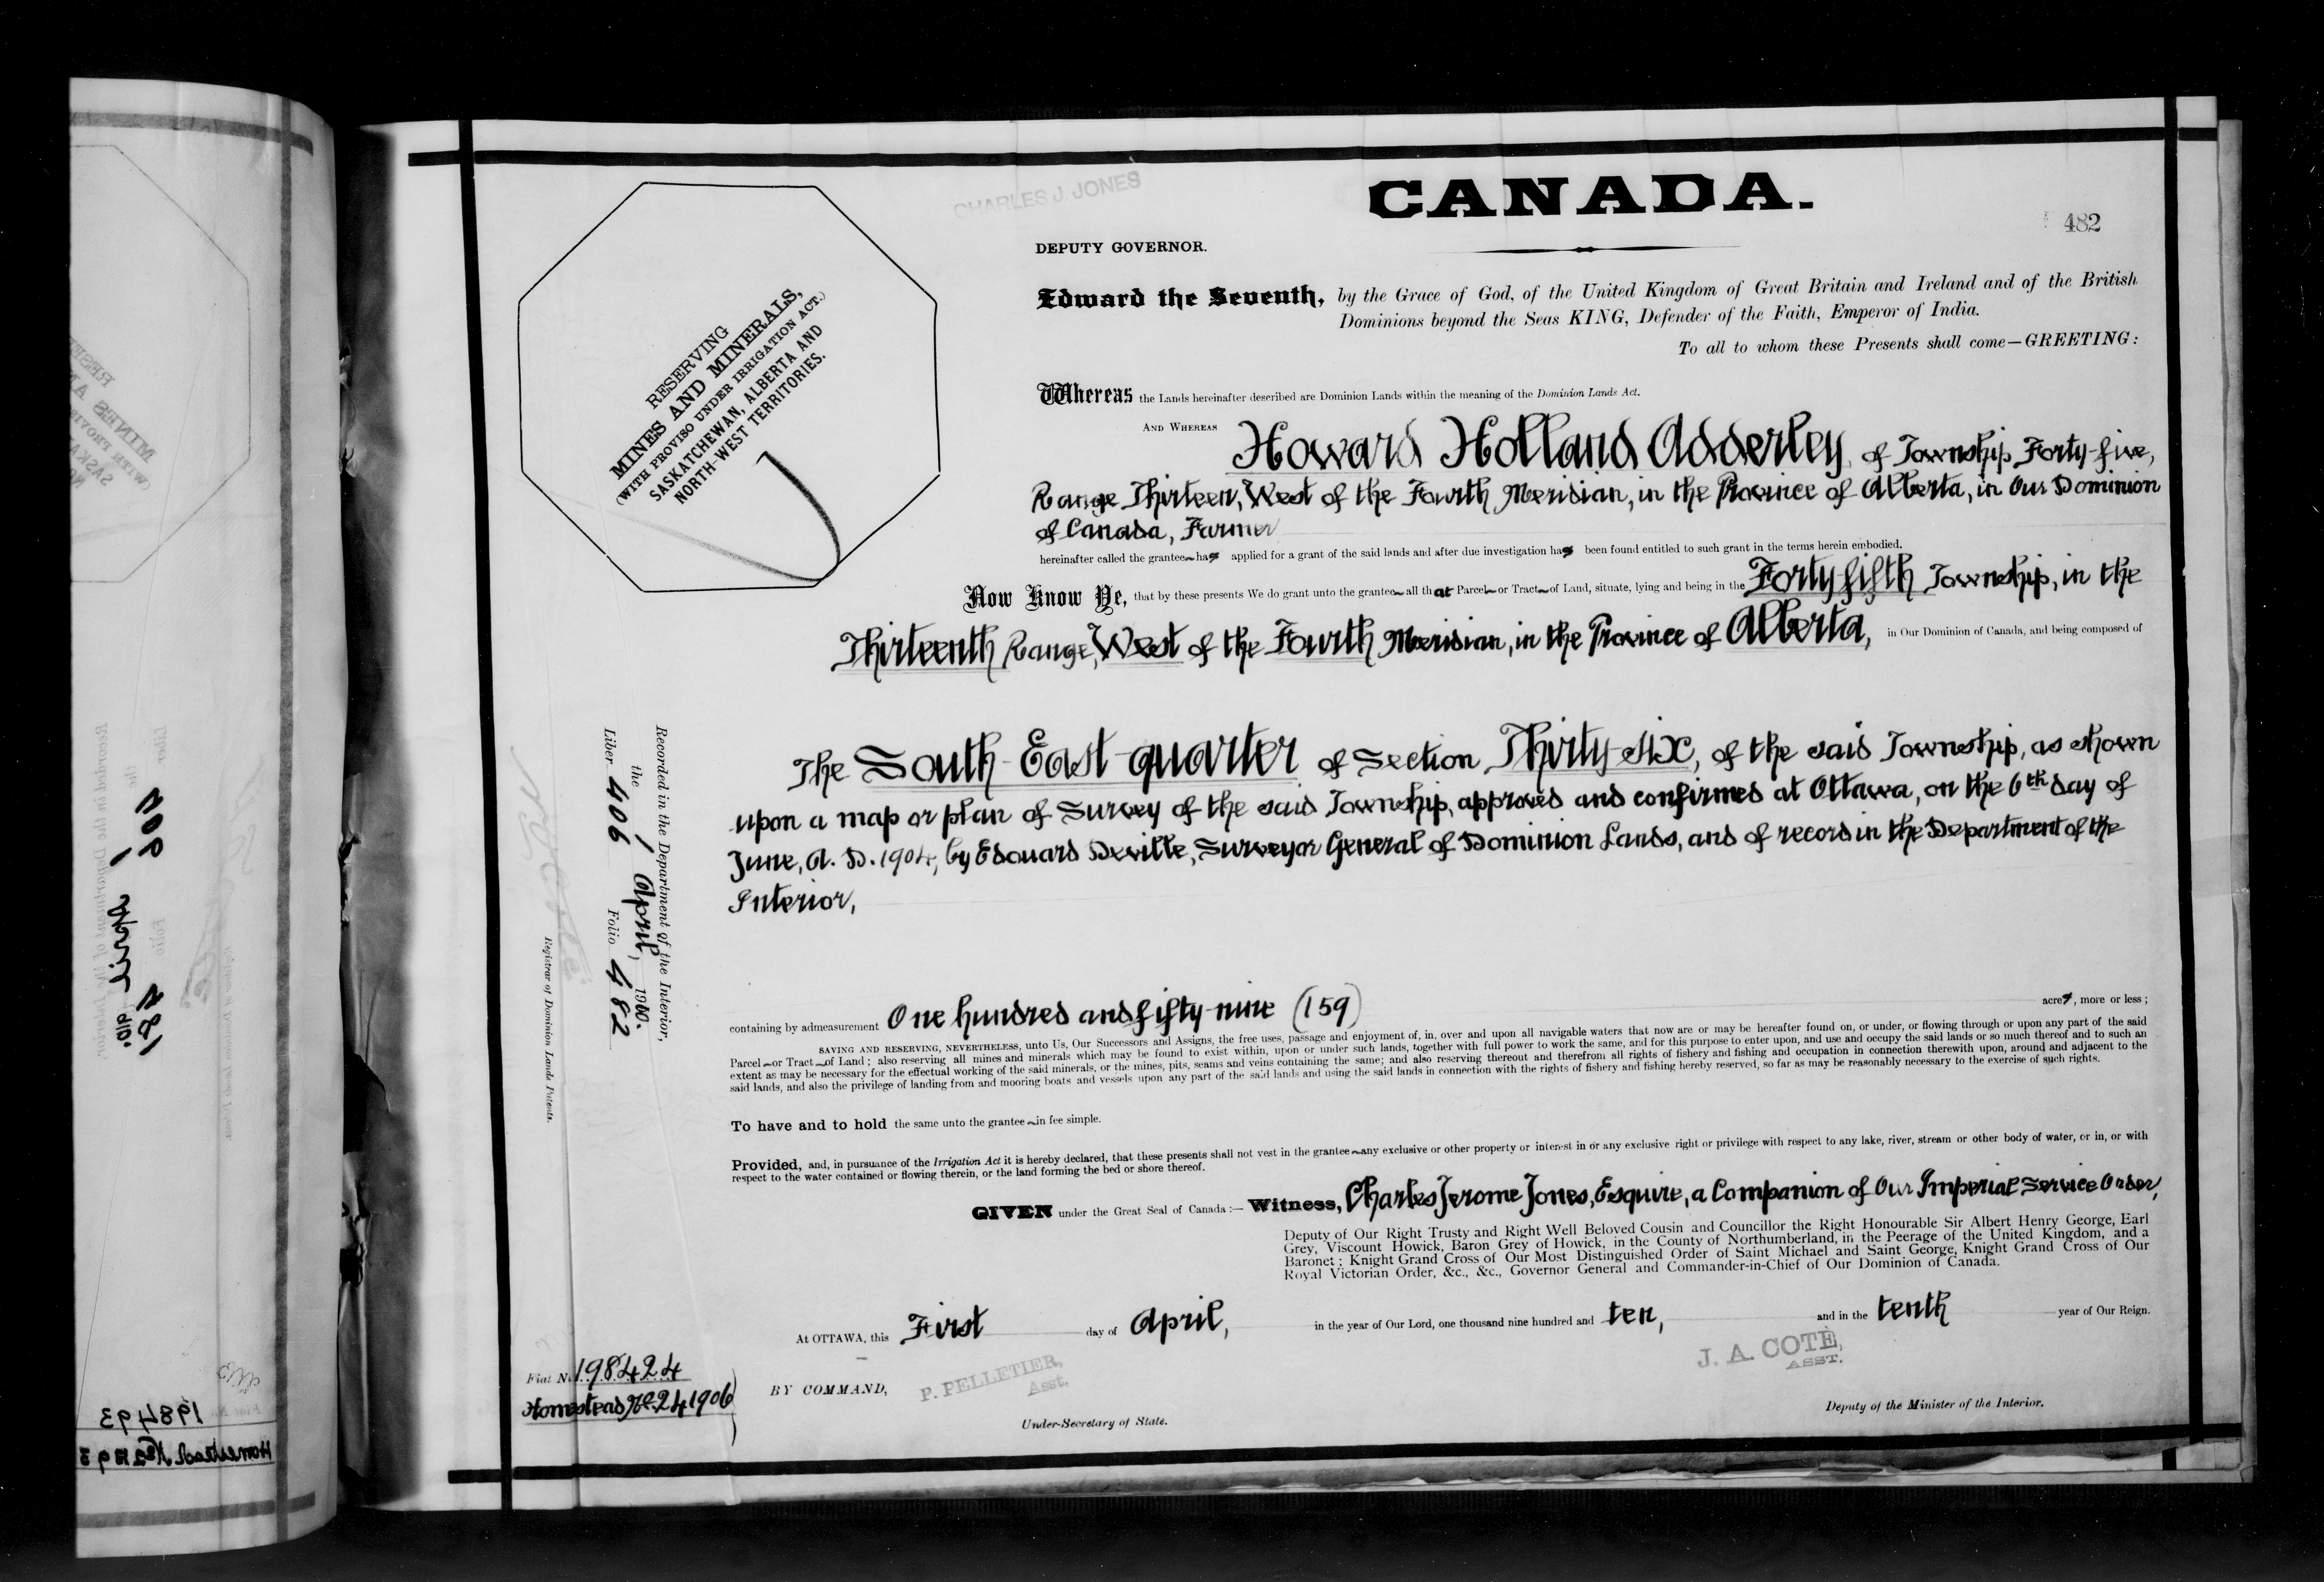 CHARLES J. JONES
CANADA.
482
DEPUTY GOVERNOR.
Edward the Seventh, by the Grace of God, of the United Kingdom of Great Britain and Ireland and of the British
Dominions beyond the Seas KING, Defender of the Faith, Emperor of India.
To all to whom these Presents shall come—GREETING:
RESERVING
MINES AND MINERALS,
(WITH PROVISO UNDER IRRIGATION ACT.)
SASKATCHEWAN, ALBERTA AND
NORTH-WEST TERRITORIES.
Whereas the Lands hereinafter described are Dominion Lands within the meaning of the Dominion Lands Act.
AND WHEREAS Howard Holland Adderley, of Township Forty-five,
Range Thirteen, West of the Fourth Meridian, in the Province of Alberta, in Our Dominion
of Canada, Farmer
hereinafter called the grantee has applied for a grant of the said lands and after due investigation has been found entitled to such grant in the terms herein embodied.
Now Know Ye, that by these presents We do grant unto the grantee all that Parcel or Tract of Land, situate, lying and being in the Forty-fifth Township, in the
Thirteenth Range, West of the Fourth Meridian, in the Province of Alberta, in Our Dominion of Canada, and being composed of
The South East quarter of Section Thirty-six, of the said Township, as shown
upon a map or plan of Survey of the said Township, approved and confirmed at Ottawa, on the 6th day of
June, A. D. 1904, by Edouard Deville, Surveyor General of Dominion Lands, and of record in the Department of the
Interior,
Recorded in the Department of the Interior,
the 1 April, 1910.
Liber 406 Folio 482
Registrar of Dominion Lands Patents.
containing by admeasurement One hundred and fifty-nine (159) acres, more or less;
SAVING AND RESERVING, NEVERTHELESS, unto Us, Our Successors and Assigns, the free uses, passage and enjoyment of, in, over and upon all navigable waters that now are or may be hereafter found on, or under, or flowing through or upon any part of the said
Parcel or Tract of Land; also reserving all mines and minerals which may be found to exist within, upon or under such lands, together with full power to work the same, and for this purpose to enter upon, and use and occupy the said lands or so much thereof and to such an
extent as may be necessary for the effectual working of the said minerals, or the mines, pits, seams and veins containing the same; and also reserving thereout and therefrom all rights of fishery and fishing and occupation in connection therewith upon, around and adjacent to the
said lands, and also the privilege of landing from and mooring boats and vessels upon any part of the said lands and using the said lands in connection with the rights of fishery and fishing hereby reserved, so far as may be reasonably necessary to the exercise of such rights.
To have and to hold the same unto the grantee in fee simple.
Provided, and, in pursuance of the Irrigation Act it is hereby declared, that these presents shall not vest in the grantee any exclusive or other property or interest in or any exclusive right or privilege with respect to any lake, river, stream or other body of water, or in, or with
respect to the water contained or flowing therein, or the land forming the bed or shore thereof.
GIVEN under the Great Seal of Canada:— Witness, Charles Jerome Jones, Esquire, a Companion of Our Imperial Service Order,
Deputy of Our Right Trusty and Right Well Beloved Cousin and Councillor the Right Honourable Sir Albert Henry George, Earl
Grey, Viscount Howick, Baron Grey of Howick, in the County of Northumberland, in the Peerage of the United Kingdom, and a
Baronet; Knight Grand Cross of Our Most Distinguished Order of Saint Michael and Saint George, Knight Grand Cross of Our
Royal Victorian Order, &c., &c., Governor General and Commander-in-Chief of Our Dominion of Canada.
At OTTAWA, this First day of April, in the year of Our Lord, one thousand nine hundred and ten, and in the tenth year of Our Reign.
Fiat No. 198424
Homestead No. 241906
BY COMMAND,
P. PELLETIER,
Asst.
Under-Secretary of State.
J. A. COTE,
ASST.
Deputy of the Minister of the Interior.